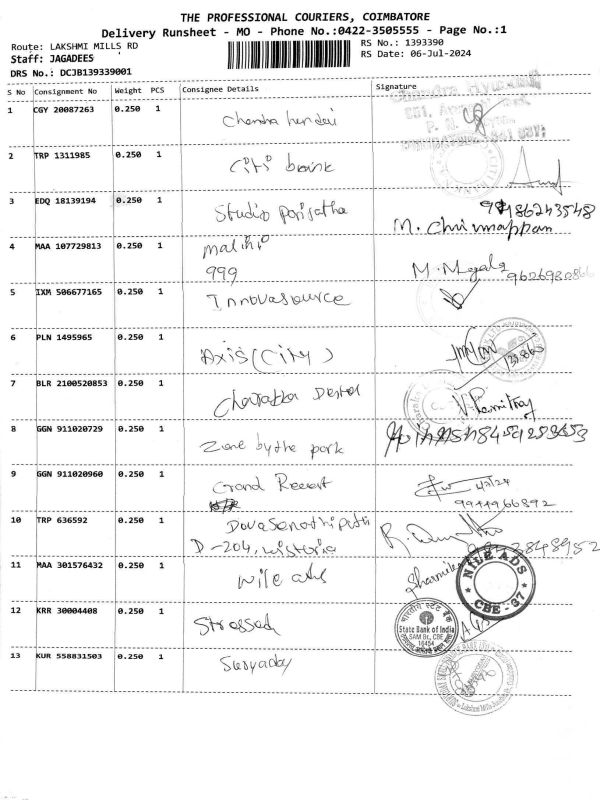 THE PROFESSIONAL COURIERS, COIMBATORE
Delivery Runsheet - MO - Phone No.:0422-3505555 - Page No.:1
Route: LAKSHMI MILLS RD
Staff: JAGADEES
DRS No.: DCJB139339001
RS No.: 1393390
RS Date: 06-Jul-2024
S No Consignment No Weight PCS Consignee Details Signature
1 CGY 20087263 0.250 1
2 TRP 1311985 0.250 1 Citi bank
3 EDQ 18139194 0.250 1 Studio Parisatha
M. Chinnappan
4 MAA 107729813 0.250 1 malini
999
5 IXM 506677165 0.250 1 Innovasource
6 PLN 1495965 0.250 1 Axis (City)
7 BLR 2100520853 0.250 1
8 GGN 911020729 0.250 1 Zone by the park
9 GGN 911020960 0.250 1 Grand Recent
9944966892
10 TRP 636592 0.250 1
D-204, wistoria
11 MAA 301576432 0.250 1 Nile ads
Sharmila
NILE ADS
CBE - 37
12 KRR 30004408 0.250 1 Stressed
भारतीय स्टेट बैंक
State Bank of India
SAM Br., CBE
16454
13 KUR 558831503 0.250 1 Suryaday